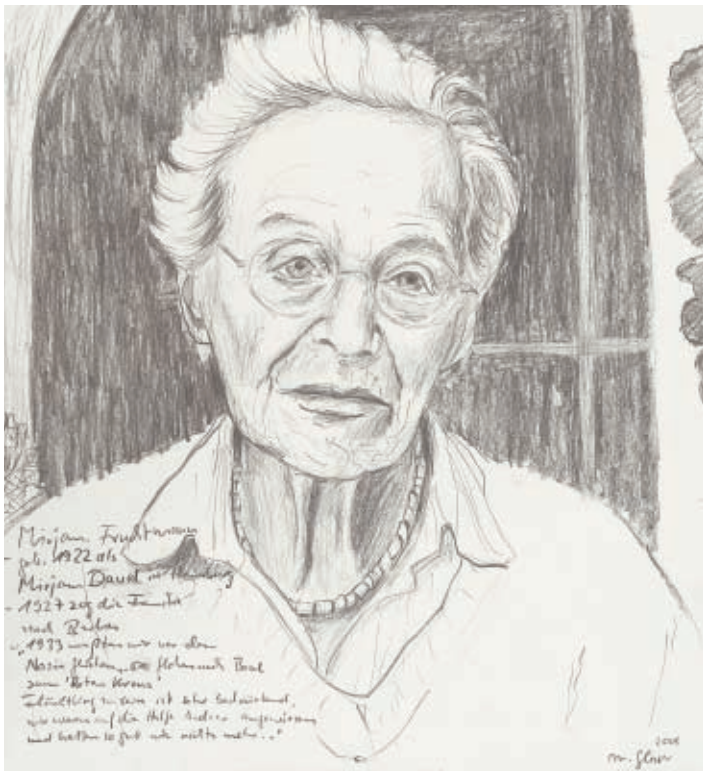 Mirjam Fruchtmann
- geb. 1922 als
Mirjam David in Hamburg
- 1927 zog die Familie
nach
- "1933 mußten wir vor den
Nazis flüchten,
zum 'Roten Kreuz'
zu sein ist sehr bedrückend,
wir waren auf die Hilfe Anderer angewiesen
und hatten so gut wie nichts mehr..."
2008
M.